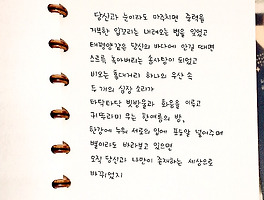 당신과 눈이라도 마주치면 중력을
거부한 입꼬리는 내려오는 법을 잊었고
태평양 같은 당신의 바다에 안길 때면
스르륵 녹아버리는 솜사탕이 되었고
비오는 홍대거리 하나의 우산 속
두 개의 심장 소리가
타닥타닥 빗방울과 화음을 이루고
귀뚜라미 우는 한여름의 밤,
한강에 누워 서로의 입에 포도알 넣어주며
별이라도 바라보고 있으면
오직 당신과 나만이 존재하는 세상으로
바뀌었지